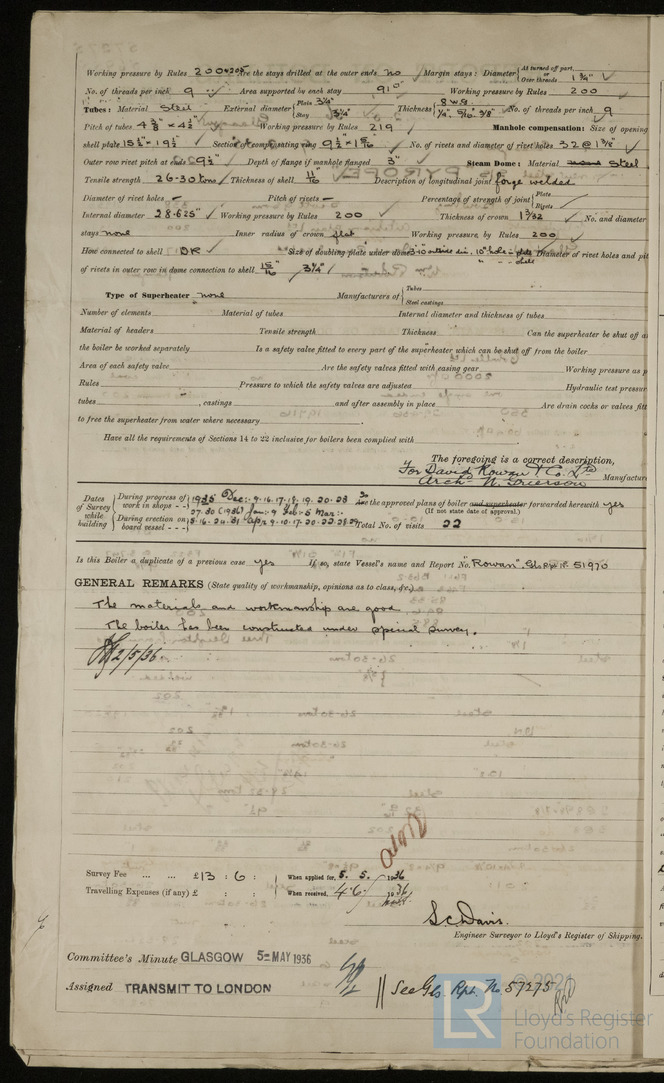 Working pressure by Rules 200 & 205 Are the stays drilled at the outer ends no Margin stays: Diameter { At turned off part, or Over threads 1 3/4"
No. of threads per inch 9 Area supported by each stay 91 0" Working pressure by Rules 200
Tubes: Material Steel External diameter { Plain 3 1/4" Stay 3 1/4" Thickness { 8 W.G. 1/4", 5/16", 3/8" No. of threads per inch 9
Pitch of tubes 4 3/8" x 4 1/2" Working pressure by Rules 219 Manhole compensation: Size of opening
shell plate 15 1/2" x 19 1/2" Section of compensating ring No. of rivets and diameter of rivet holes 32 @ 1 3/8"
Outer row rivet pitch at ends 9 1/2" Depth of flange if manhole flanged 3" Steam Dome: Material Steel
Tensile strength 26-30 tons Thickness of shell 11/16 Description of longitudinal joint forge welded
Diameter of rivet holes – Pitch of rivets – Percentage of strength of joint { Plate Rivets
Internal diameter 28.625" Working pressure by Rules 200 Thickness of crown 1 3/32 No. and diameter
stays none Inner radius of crown flat Working pressure by Rules 200
How connected to shell DR Size of doubling plate under dome 3'1" outside dia. 10" hole Diameter of rivet holes and pit
of rivets in outer row in dome connection to shell 15/16 3 3/4"
Type of Superheater none Manufacturers of { Tubes Steel castings
Number of elements Material of tubes Internal diameter and thickness of tubes
Material of headers Tensile strength Thickness Can the superheater be shut off a
the boiler be worked separately Is a safety valve fitted to every part of the superheater which can be shut off from the boiler
Area of each safety valve Are the safety valves fitted with easing gear Working pressure as p
Rules Pressure to which the safety valves are adjusted Hydraulic test pressur
tubes , castings and after assembly in place Are drain cocks or valves fitt
to free the superheater from water where necessary
Have all the requirements of Sections 14 to 22 inclusive for boilers been complied with
The foregoing is a correct description,
For David Rowan & Co. Ltd
Arch. N. Grierson Manufactur
Dates of Survey while building { During progress of work in shops - - 1935 Dec: 9.16.17.18.19.20.28 30 Are the approved plans of boiler and superheater forwarded herewith yes
27.30 (1936) Jan: 9 Feb: 5 Mar: (If not state date of approval.)
During erection on board vessel - - - 5.16.24.31 Apr 9.10.17.20.22.28.29 Total No. of visits 22
Is this Boiler a duplicate of a previous case yes If so, state Vessel's name and Report No. "Rowan". Gls Rpt No 51970
GENERAL REMARKS (State quality of workmanship, opinions as to class, &c.)
The materials and workmanship are good.
The boiler has been constructed under special survey.
2/5/36
Survey Fee ... ... £13 : 6 : When applied for, 5. 5. 1936
Travelling Expenses (if any) £ : : When received, 4.6. 1936
S.C. Davis.
Engineer Surveyor to Lloyd's Register of Shipping.
Committee's Minute GLASGOW 5 - MAY 1936
Assigned TRANSMIT TO LONDON
See Gls. Rpt. No. 57275
© 2021
LR
Lloyd's Register
Foundation